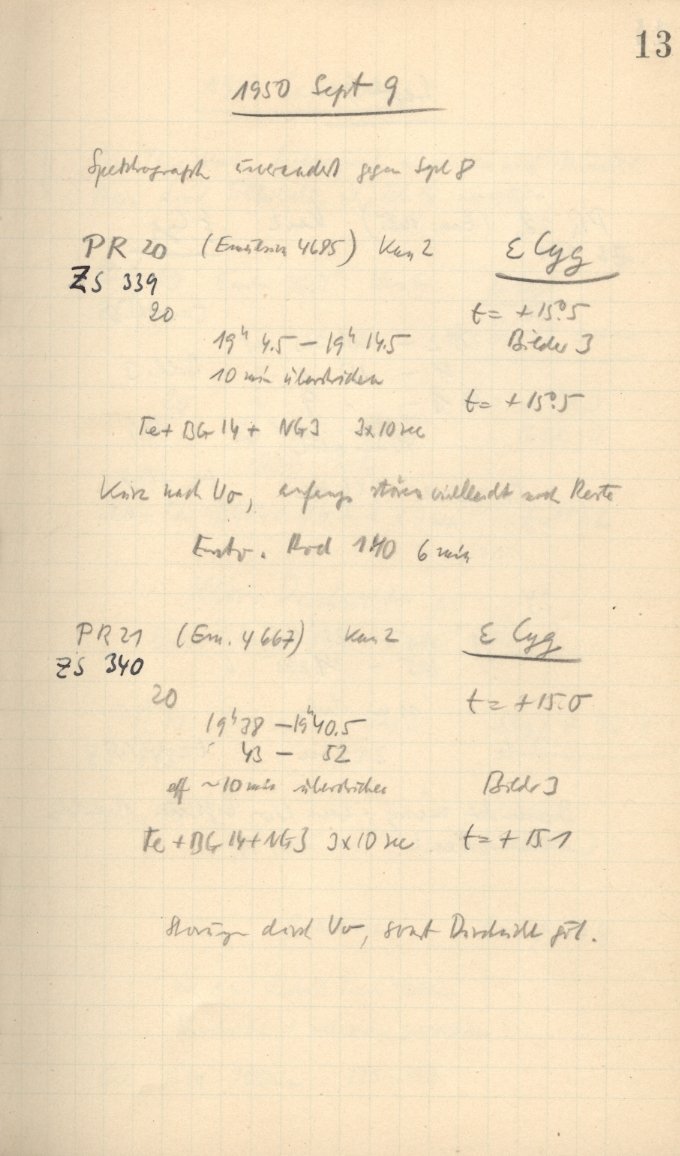 13
1950 Sept 9
Spektrograph unverändert gegen Sept 8
PR 20 (Emulsion 4685) Kam 2 ε Cyg
ZS 339
20 t = +15°.5
19h 4.5 – 19h 14.5 Bilder 3
10 min überstrichen
t = +15°.5
Fe + BG 14 + NG3 3x10 sec
Kurz nach Vo, anfangs stören vielleicht noch Reste
Entw. Rod 1:40 6 min
PR 21 (Em. 4667) Kam 2 ε Cyg
ZS 340
20 t = +15.0
19h 38 – 19h 40.5
43 – 52
eff ~10 min überstrichen Bilder 3
Fe + BG 14 + NG3 3x10 sec t = +15.1
Störungen durch Vo, sonst Durchsicht gut.